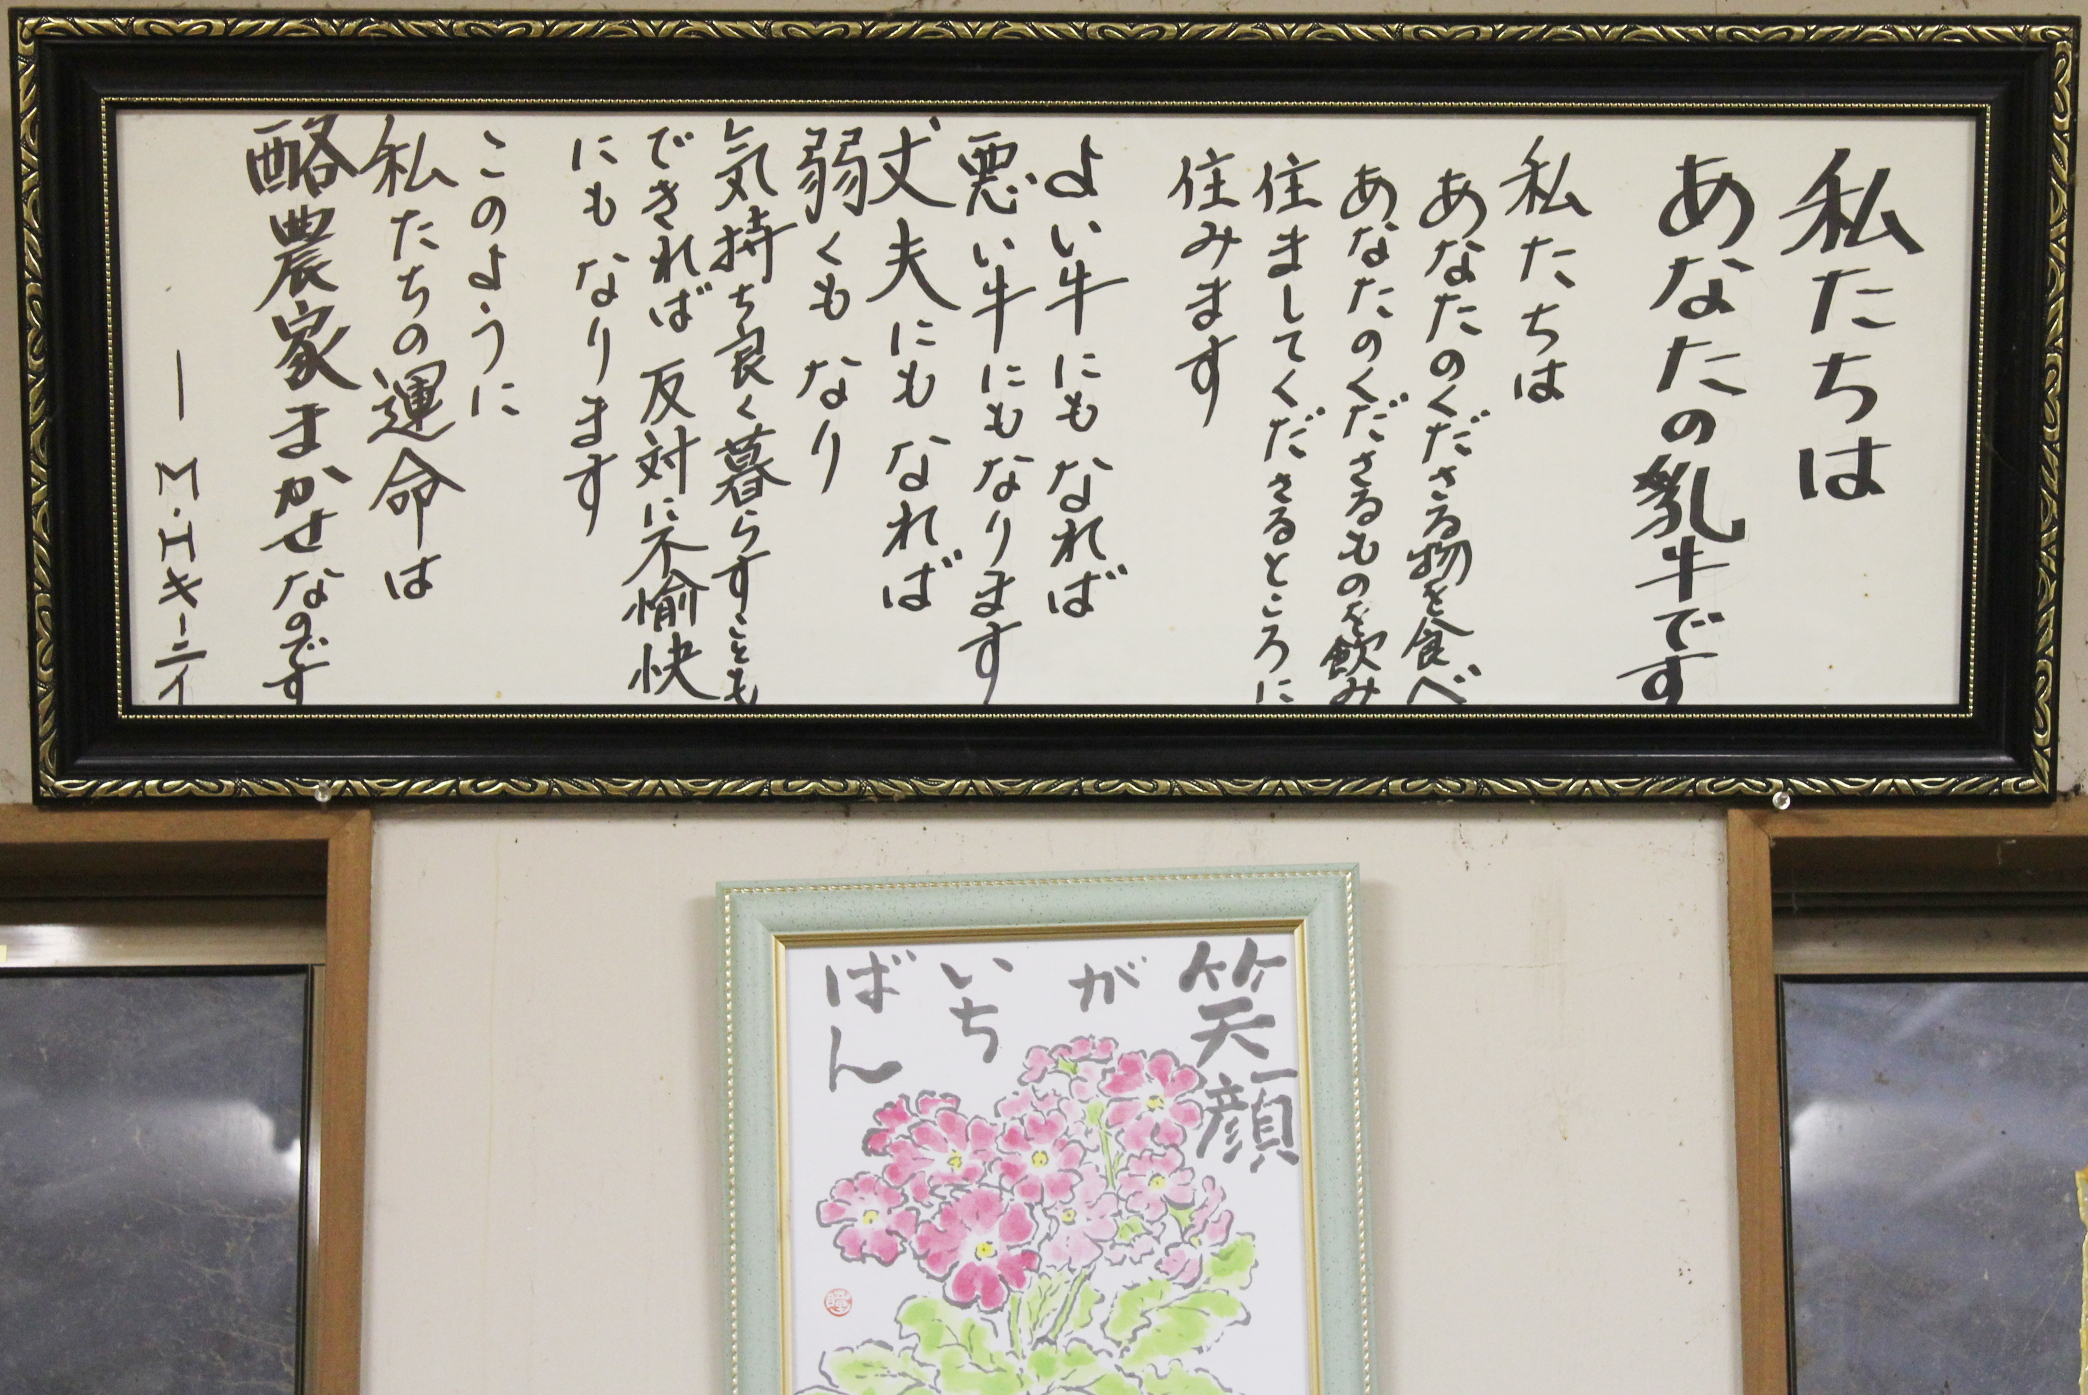 私たちは
あなたの乳牛です
私たちは
あなたのくださる物を食べ
あなたのくださるものを飲み
住ましてくださるところに
住みます
よい牛にもなれば
悪い牛にもなります
丈夫にもなれば
弱くもなり
気持ち良く暮らすことも
できれば反対に不愉快
にもなります
このように
私たちの運命は
酪農家まかせなのです
―M・Hキーニイ
笑顔
が
いち
ばん